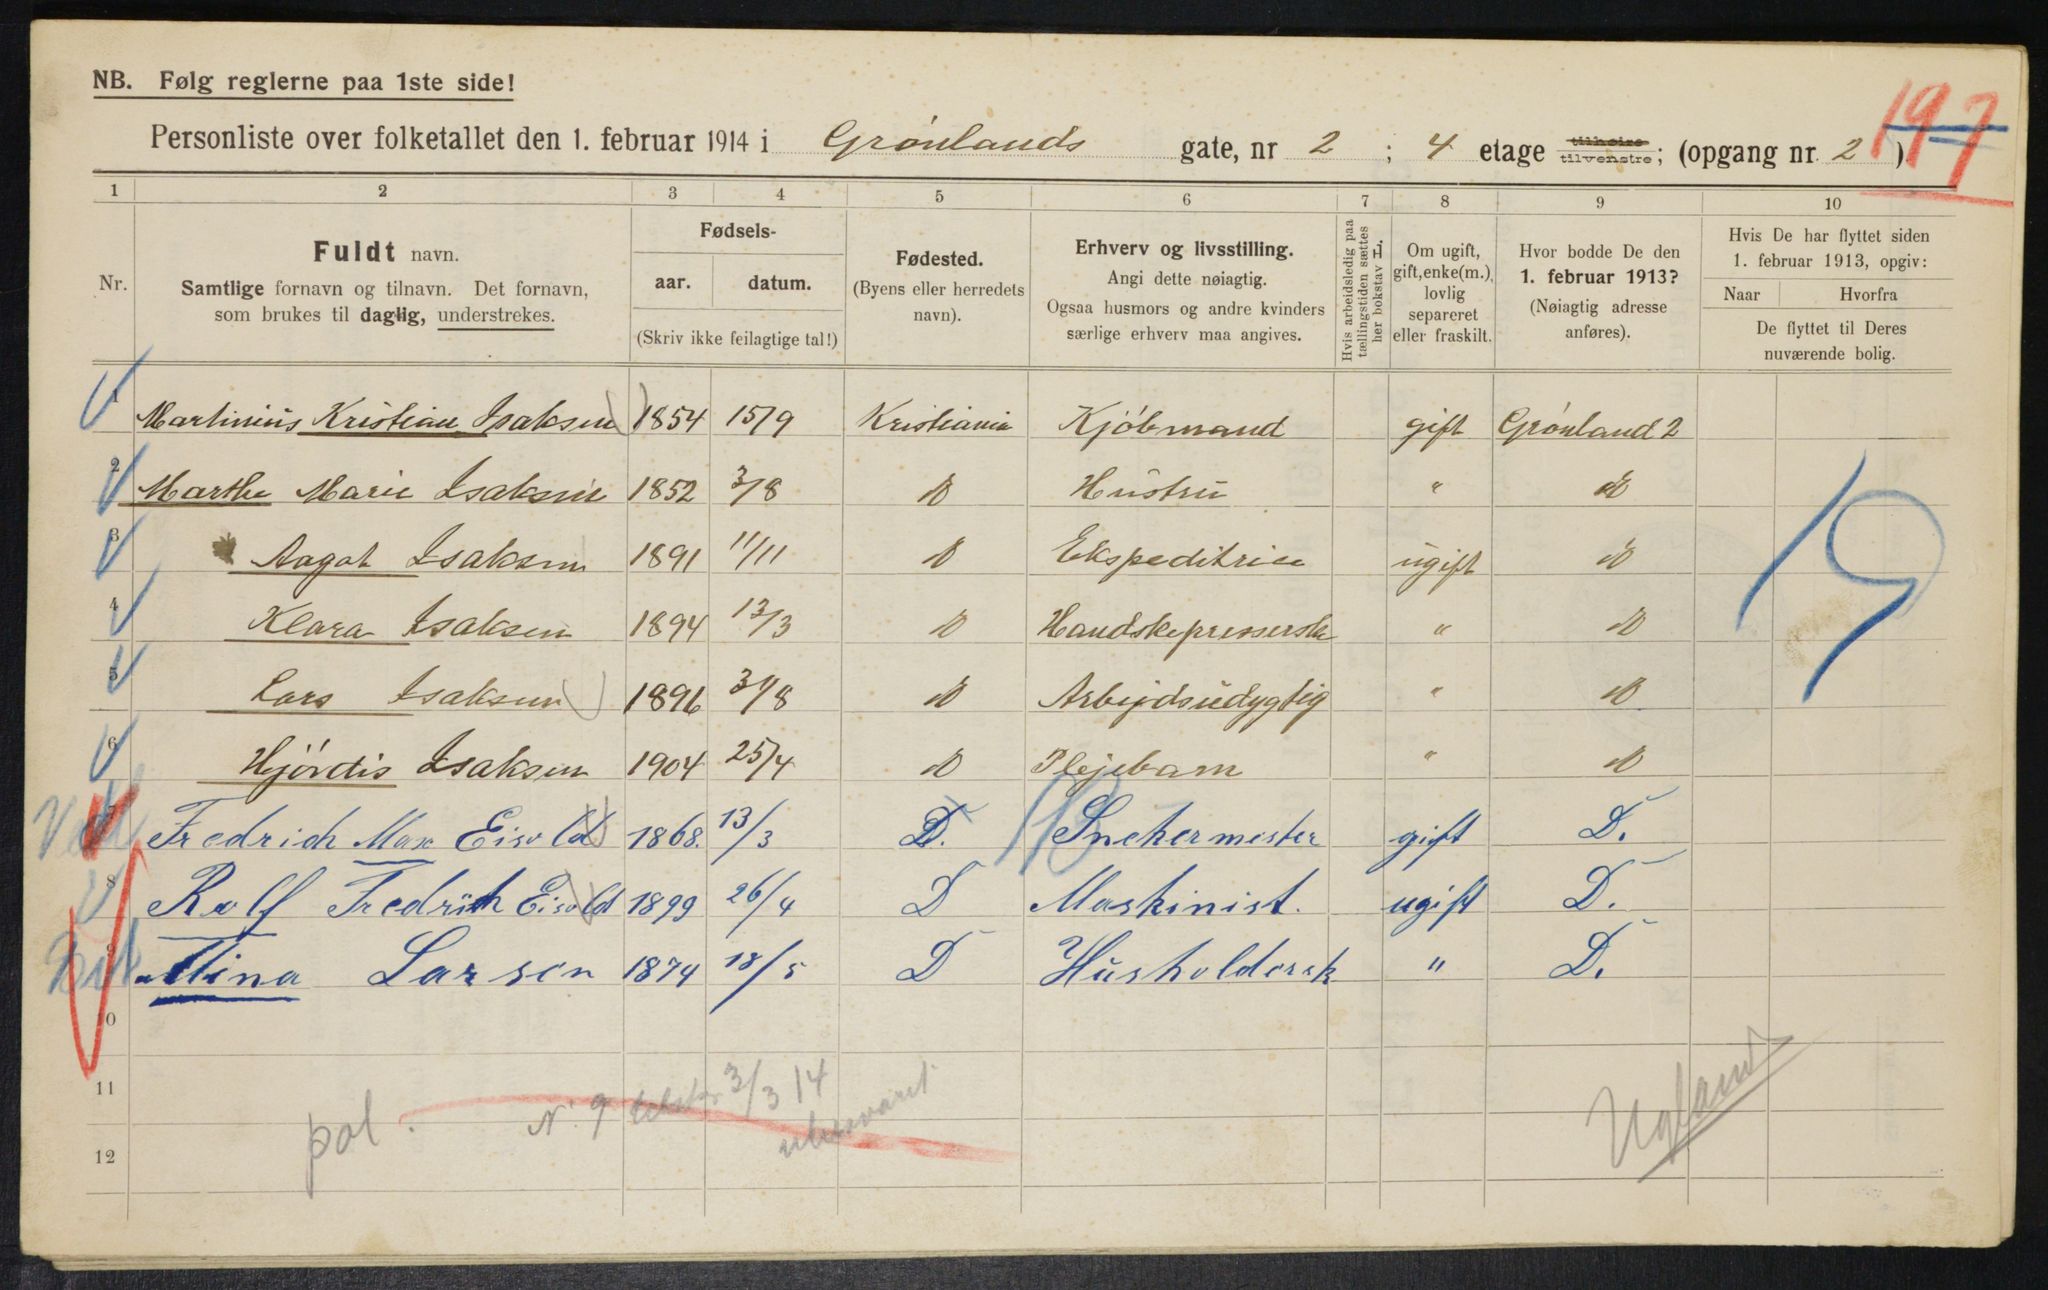 NB. Følg reglerne paa 1ste side!
197
Personliste over folketallet den 1. februar 1914 i Grønlands gate, nr 2 ; 4 etage tilhøire tilvenstre; (opgang nr. 2 )
1 2 3 4 5 6 7 8 9 10
Nr.
Fuldt navn.
Samtlige fornavn og tilnavn. Det fornavn,
som brukes til daglig, understrekes.
Fødsels-
aar. datum.
(Skriv ikke feilagtige tal!)
Fødested.
(Byens eller herredets
navn).
Erhverv og livsstilling.
Angi dette nøiagtig.
Ogsaa husmors og andre kvinders
særlige erhverv maa angives.
Hvis arbeidsledig paa
tællingstiden sættes
her bokstav L.
Om ugift,
gift, enke(m.),
lovlig
separeret
eller fraskilt.
Hvor bodde De den
1. februar 1913?
(Nøiagtig adresse
anføres).
Hvis De har flyttet siden
1. februar 1913, opgiv:
Naar Hvorfra
De flyttet til Deres
nuværende bolig.
1 Martinius Kristian Isaksen 1854 15/9 Kristiania Kjöbmand gift Grønland 2
2 Marthe Marie Isaksen 1852 3/8 D Hustru " D
3 Aagot Isaksen 1891 11/11 D Ekspeditrice ugift D
4 Klara Isaksen 1894 13/3 D Handskepresserske " D
5 Lars Isaksen 1896 31/8 D Arbejdsudygtig " D
6 Hjördis Isaksen 1904 25/4 D Plejebarn " D
7 Fredrich Max Eisold 1868. 13/3 D. Snekermester gift D.
8 Rolf Fredrich Eisold 1899 26/4 D Maskinist. ugift D.
9 Mina Larsen 1874 18/5 D Husholdersk " D.
10
11
12
pol. N. 9 3/3 14